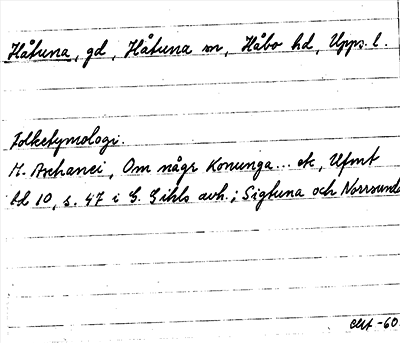 Håtuna, gd, Håtuna sn, Håbo hd, Upps. l.
Folketymologi.
M. Aschanei, Om någr Konunga... etc, Ufmt
bd 10, s. 47 i G. Gihls avh.; Sigtuna och Norrsunda
-60